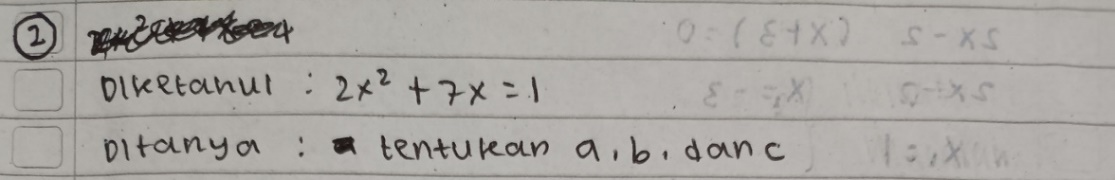 2
Diketahui : 2x² + 7x = 1
Ditanya : tentukan a, b, dan c